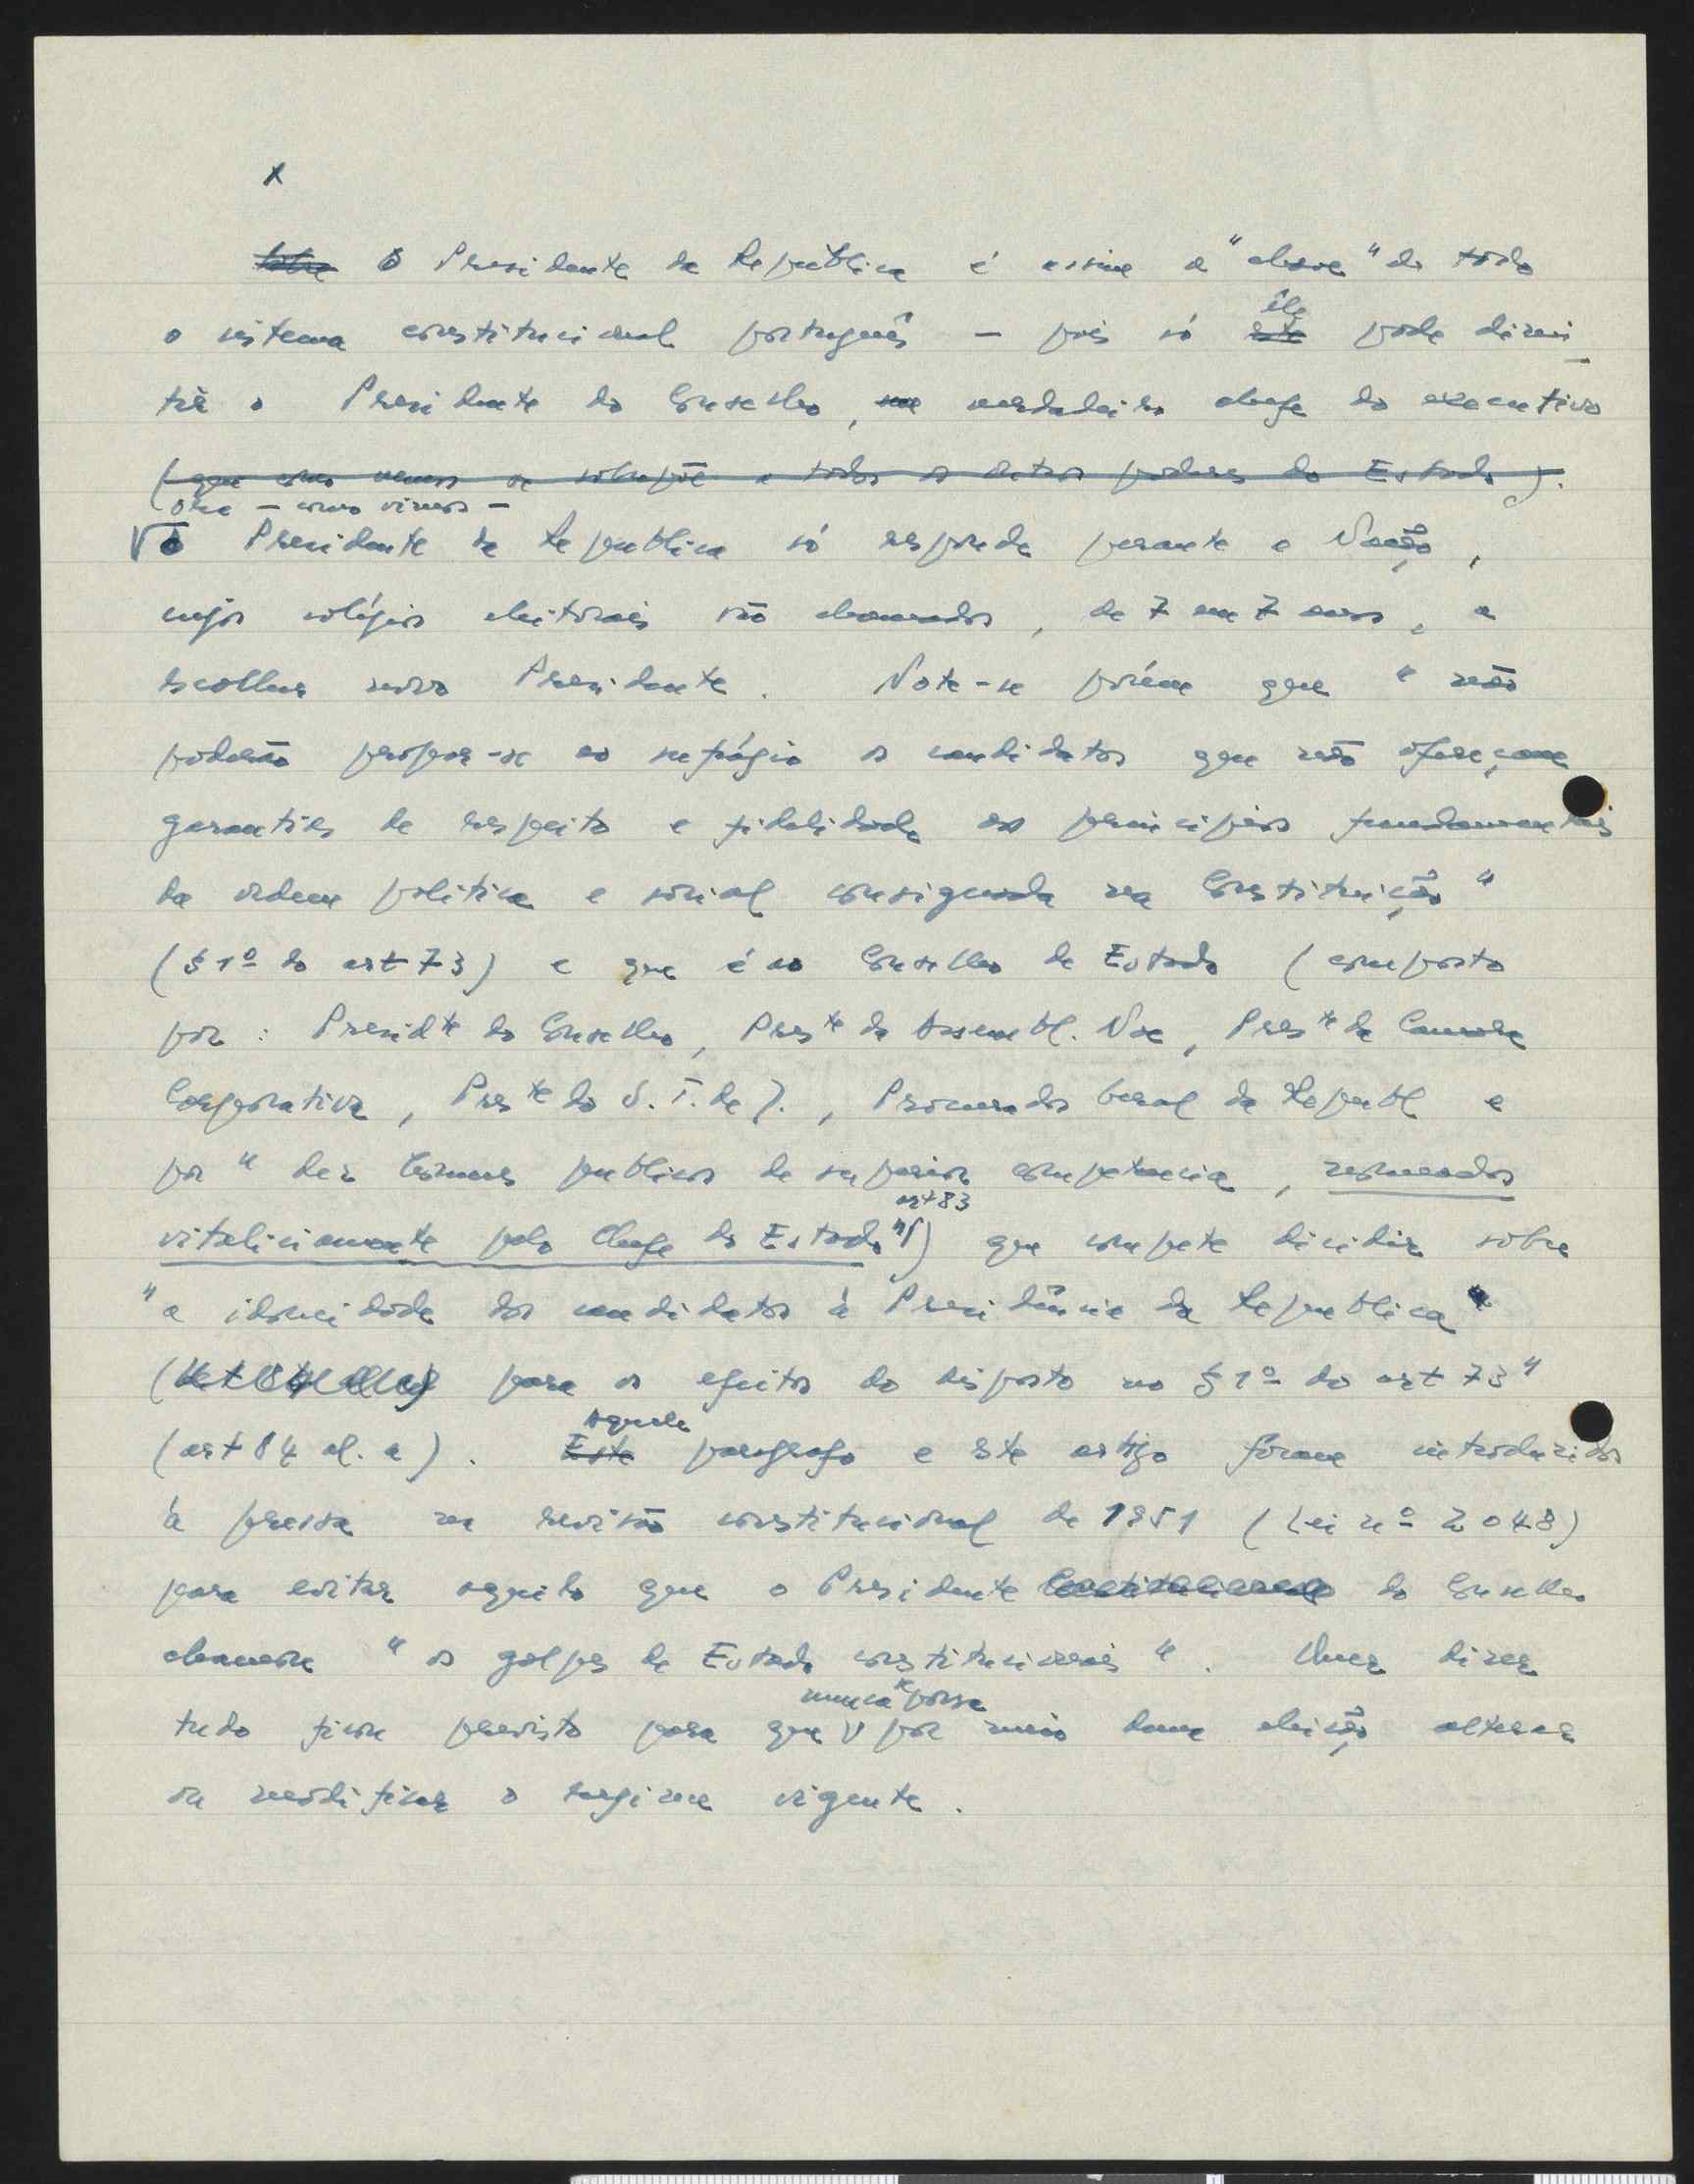 x
Sobre O Presidente da República é assim a "chave" de todo
o sistema constitucional português – pois só este êle pode demi-
tir o Presidente do Conselho, verdadeiro chefe do executivo
(que como vemos se sobrepõe a todos os outros poderes do Estado).
(Ora – como vimos –
O Presidente da Republica só responde perante a Nação,
cujos colégios eleitorais são chamados, de 7 em 7 anos, a
escolher novo Presidente. Note-se porém que "não
poderão propor-se ao sufrágio os candidatos que não ofereçam
garantias de respeito e fidelidade aos principios fundamentais
da ordem politica e social consignada na Constituição"
(§ 1º do art 73) e que é ao Conselho de Estado (composto
por: Presidte do Conselho, Preste da Assembl. Nac, Preste da Camara
Corporativa, Preste do S. T. de J., Procurador Geral da Republ e
por "dez homens publicos de superior competencia, nomeados
vitaliciamente pelo Chefe do Estado" art 83) que compete dicidir sobre
"a idoneidade dos candidatos à Presidência da Republica
( para os efeitos do disposto no § 1º do art 73"
(art 84 al. a). Este Aquele paragrafo e este artigo foram introduzidos
à pressa na revisão constitucional de 1951 (Lei nº 2048)
para evitar aquilo que o Presidente Constitucional do Conselho
chamara "os golpes de Estado constitucionais". Quer dizer
tudo ficou previsto para que nunca se possa por meio duma eleição alterar
ou modificar o regime vigente.